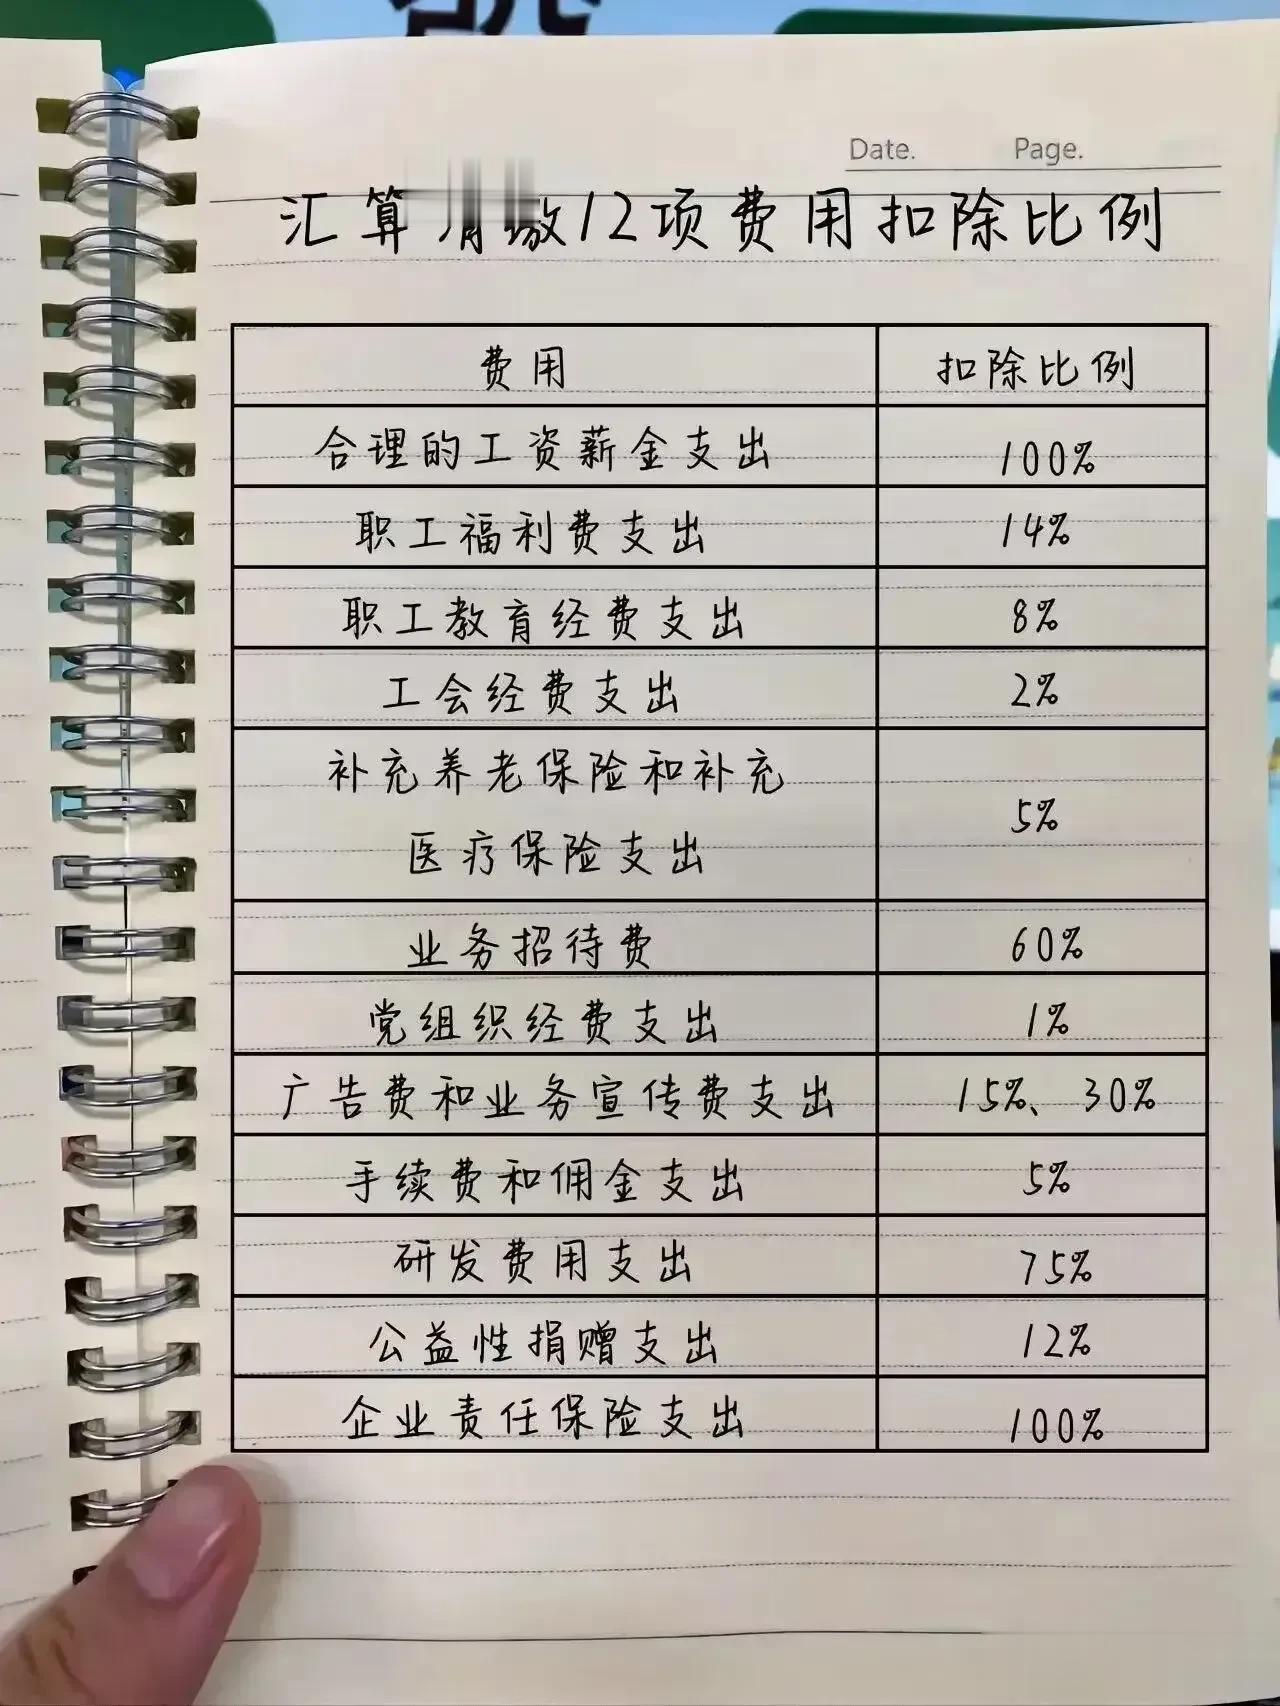 Date. Page.
汇算清缴12项费用扣除比例
费用 扣除比例
合理的工资薪金支出 100%
职工福利费支出 14%
职工教育经费支出 8%
工会经费支出 2%
补充养老保险和补充
医疗保险支出 5%
业务招待费 60%
党组织经费支出 1%
广告费和业务宣传费支出 15%、30%
手续费和佣金支出 5%
研发费用支出 75%
公益性捐赠支出 12%
企业责任保险支出 100%